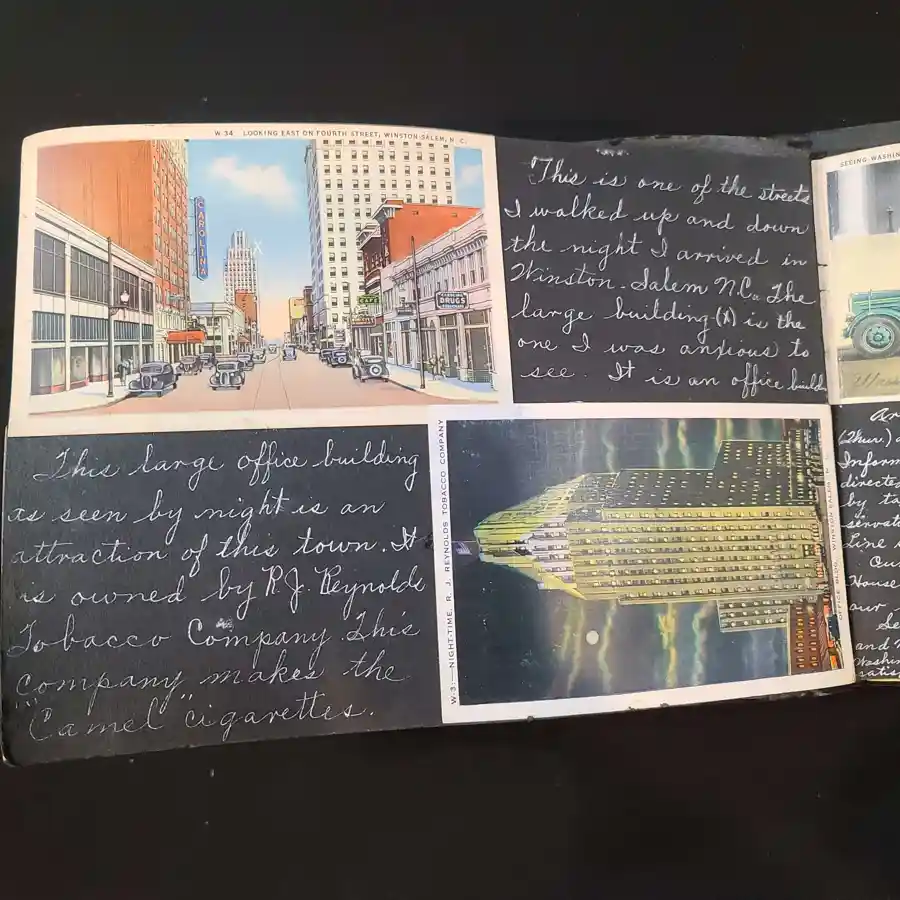 W 34 LOOKING EAST ON FOURTH STREET, WINSTON-SALEM, N. C.
CAROLINA
CAFE
DRUGS
This is one of the streets
I walked up and down
the night I arrived in
Winston-Salem N.C. The
large building (X) is the
one I was anxious to
see. It is an office build
This large office building
as seen by night is an
attraction of this town. It
is owned by R.J. Reynolds
Tobacco Company. This
company makes the
"Camel" cigarettes.
W-3:—NIGHT-TIME, R. J. REYNOLDS TOBACCO COMPANY
OFFICE BLDG., WINSTON-SALEM, N.
SEEING WASHIN
Ar
(Thur.) a
Inform
directe
by ta
servat
Line
Our
House
our
Se
and
Washin